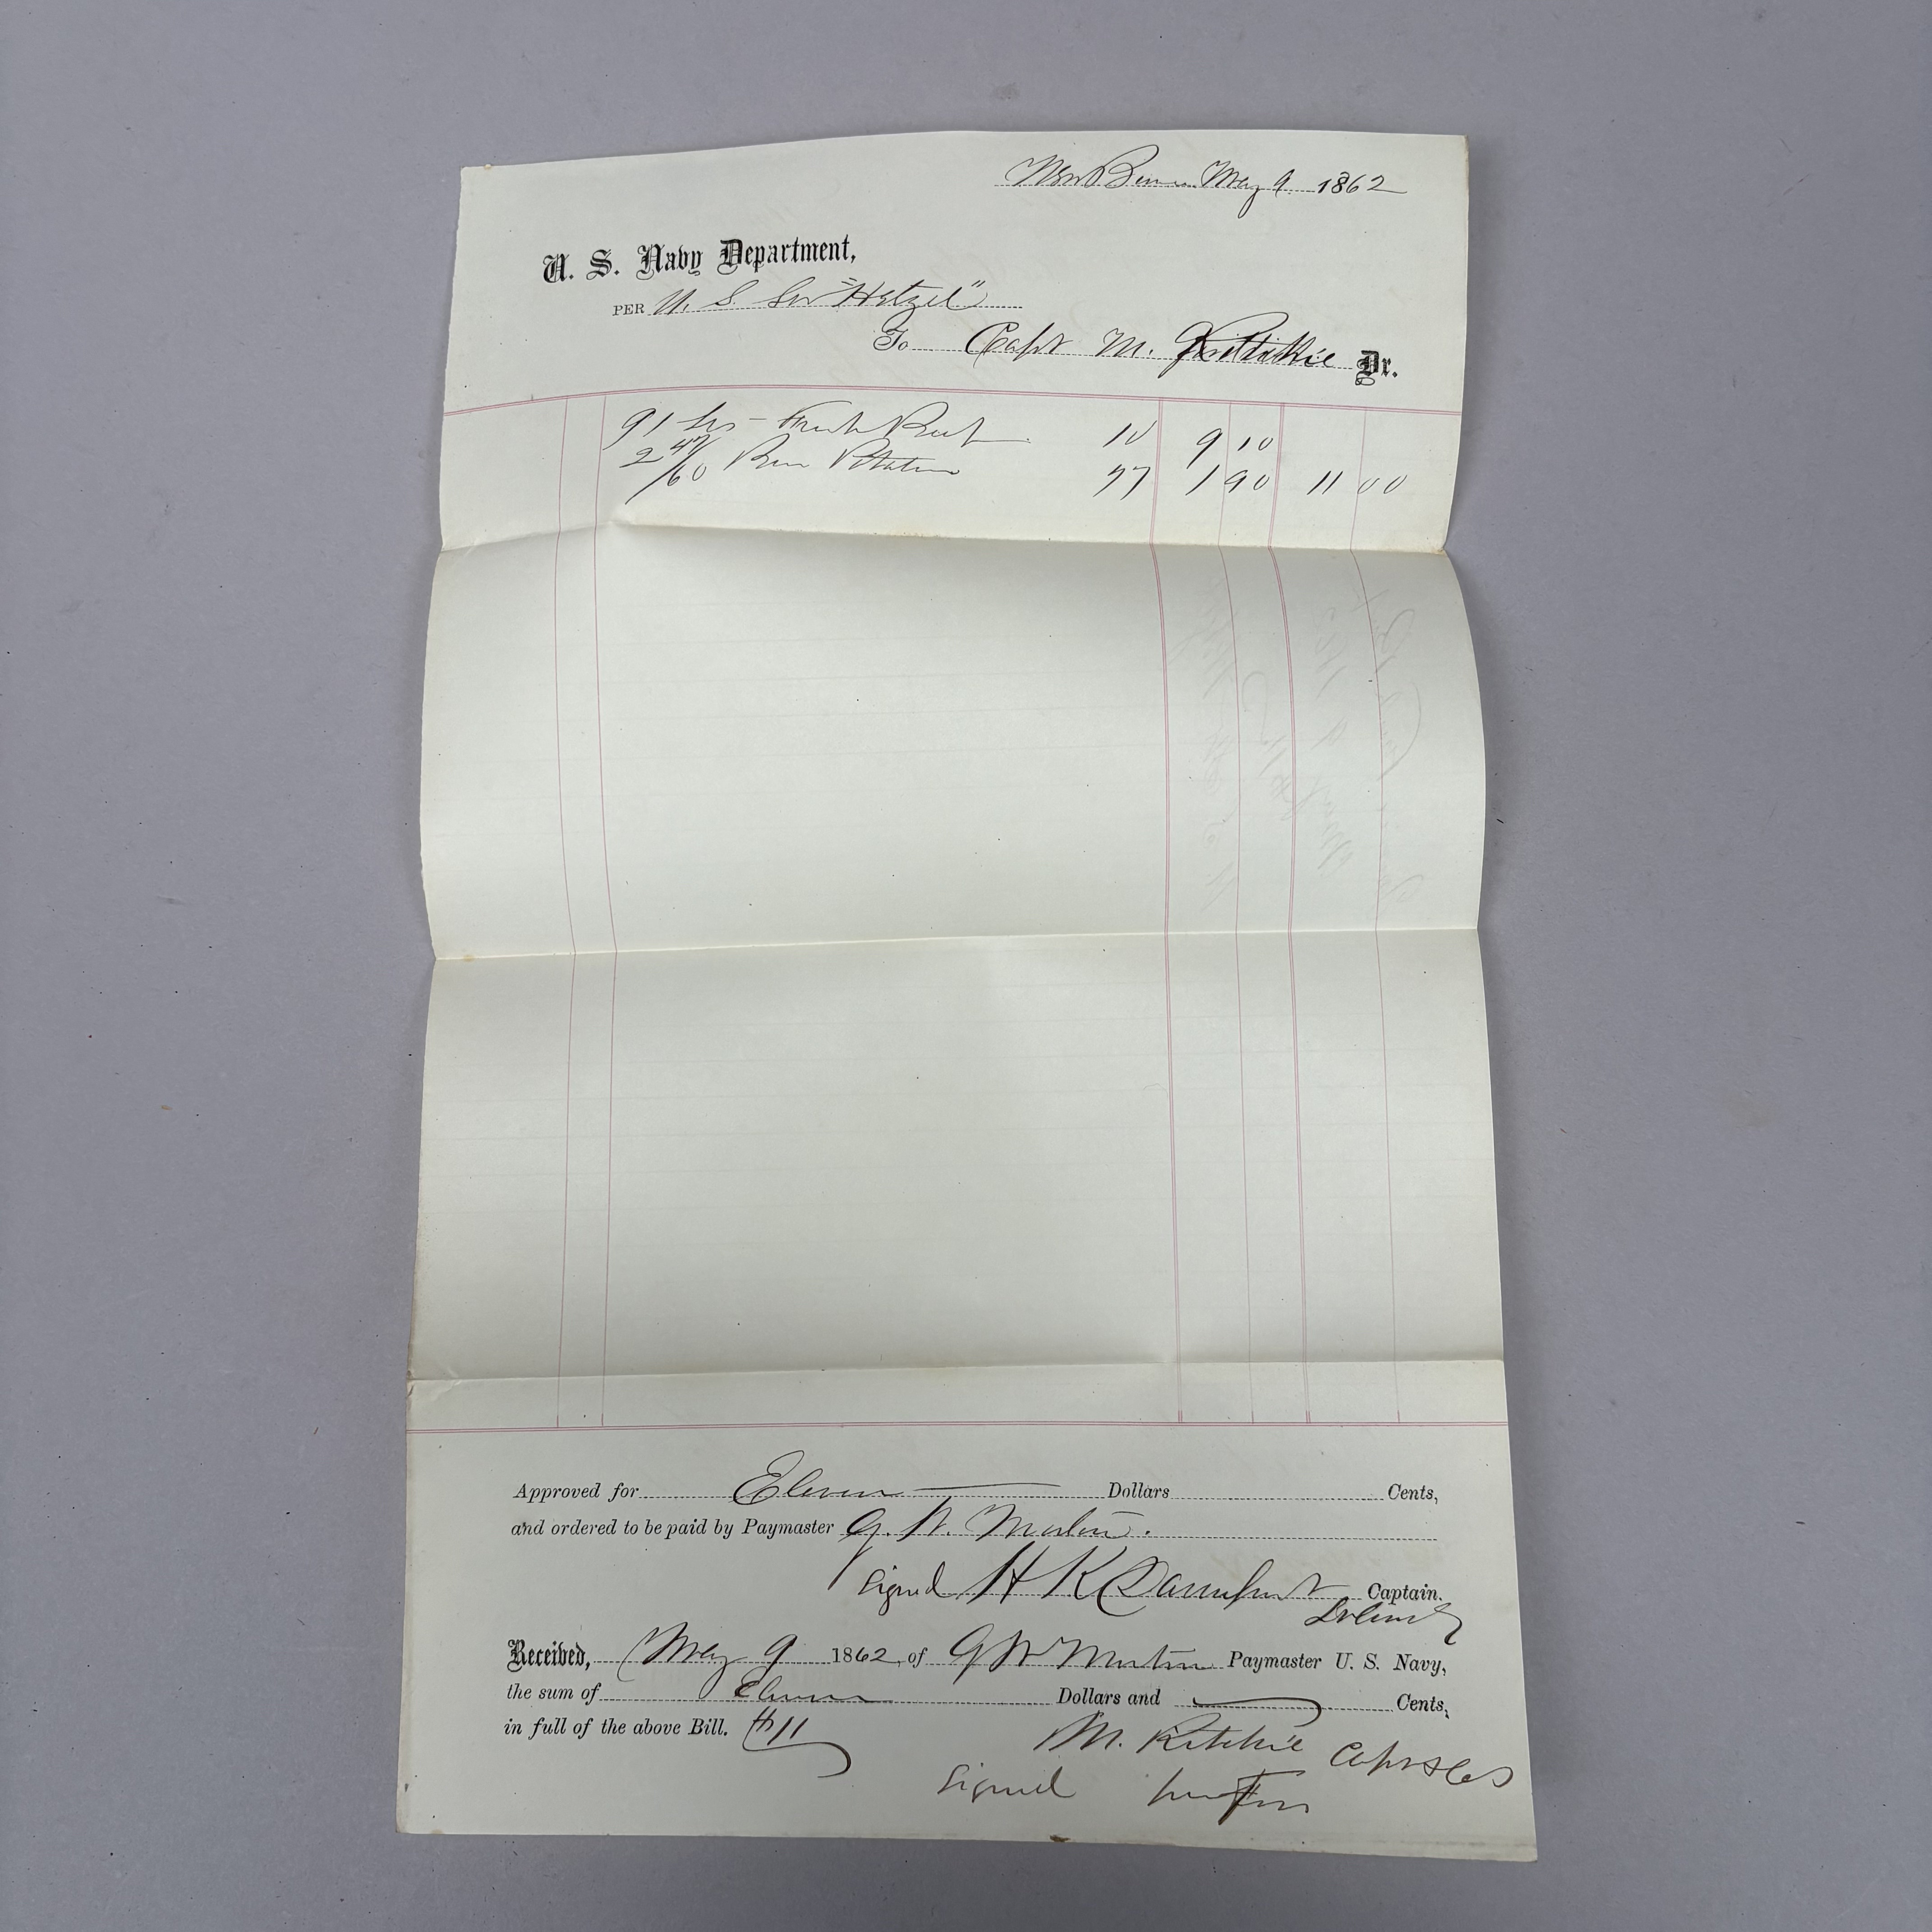 New Berne May 9 1862
U. S. Navy Department,
PER U. S. Str "Hetzel"
To Capt M. Ritchie Dr.
91 lbs - Fresh Beef 10 9 10
2 47/60 Bus Potatoes 1 90 11 00
Approved for Eleven Dollars Cents,
and ordered to be paid by Paymaster G. W. Martin.
Signed H K Davenport Captain.
Received, May 9 1862, of G W Martin Paymaster U. S. Navy,
the sum of Eleven Dollars and Cents,
in full of the above Bill. $11
M. Ritchie Capt &
Signed